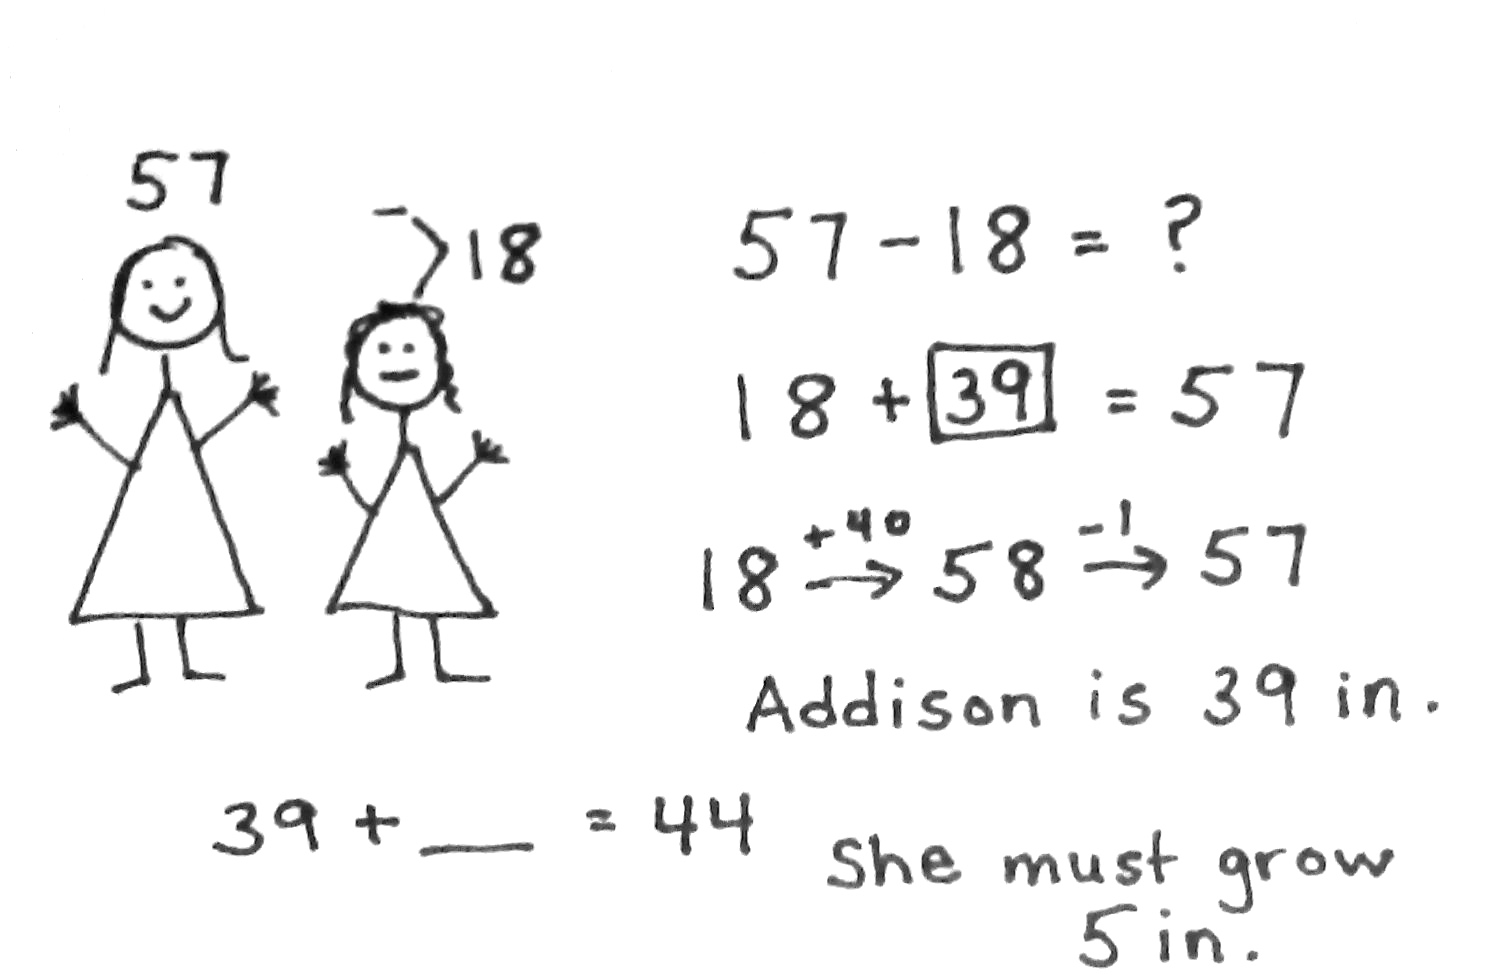 57
18
57 - 18 = ?
18 + 39 = 57
+40 -1
18 → 58 → 57
Addison is 39 in.
39 + __ = 44
She must grow
5 in.